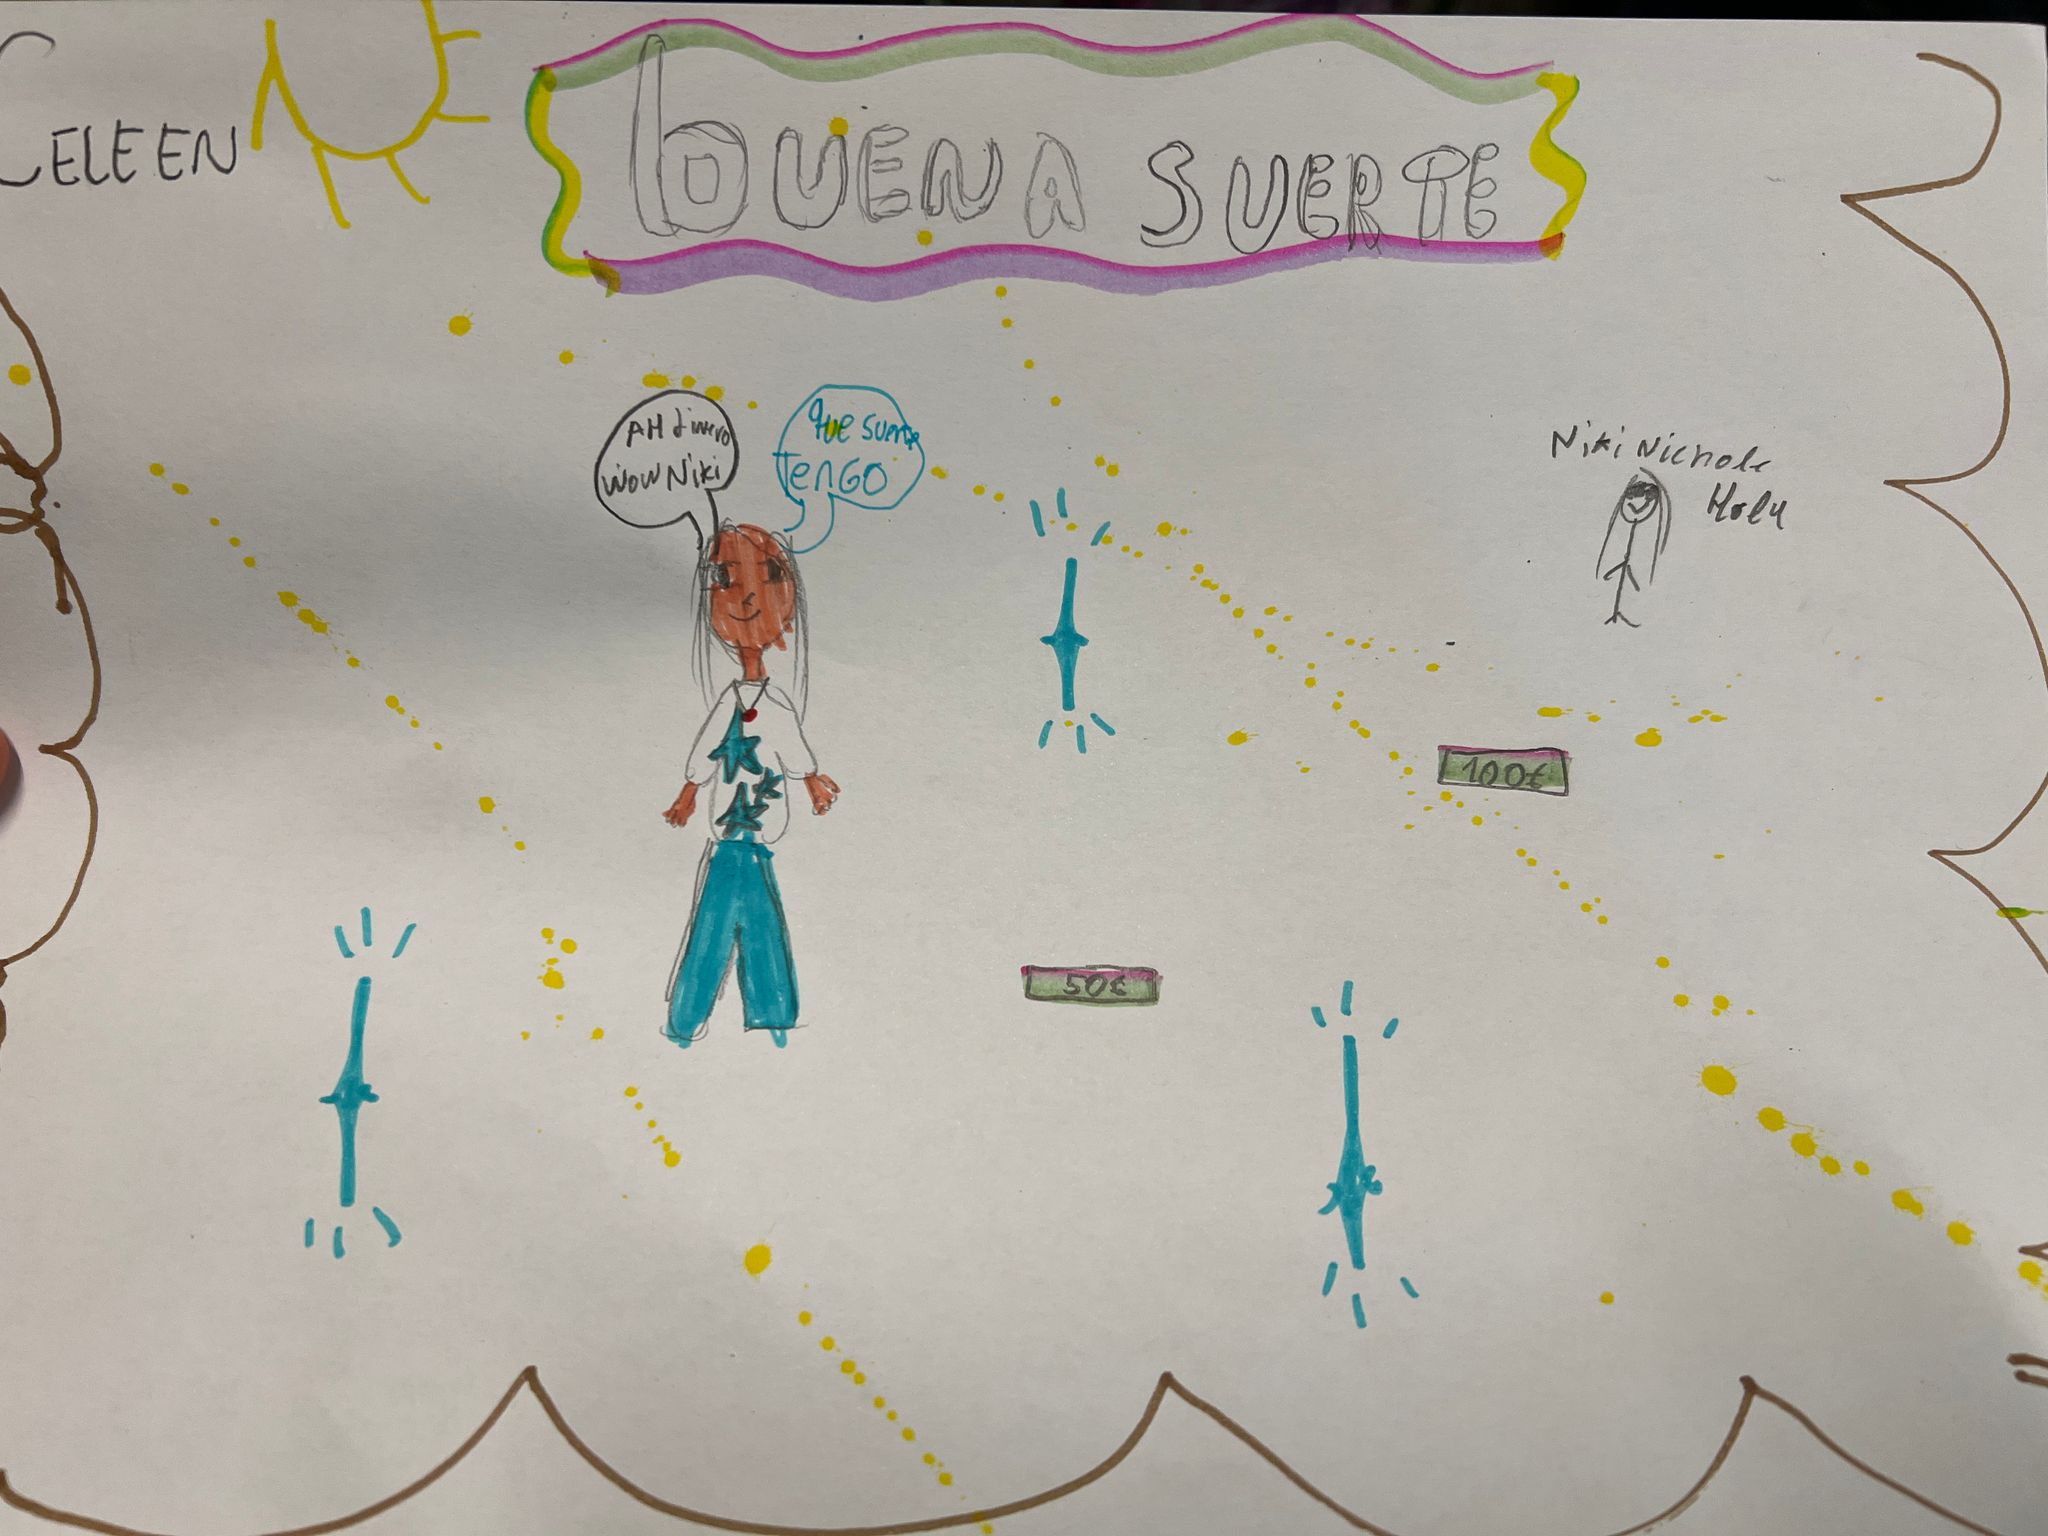 CELEEN
bUENA SUERTE
AH dinero
WOW Niki
que suerte
TENGO
Niki Nichole
100€
50€